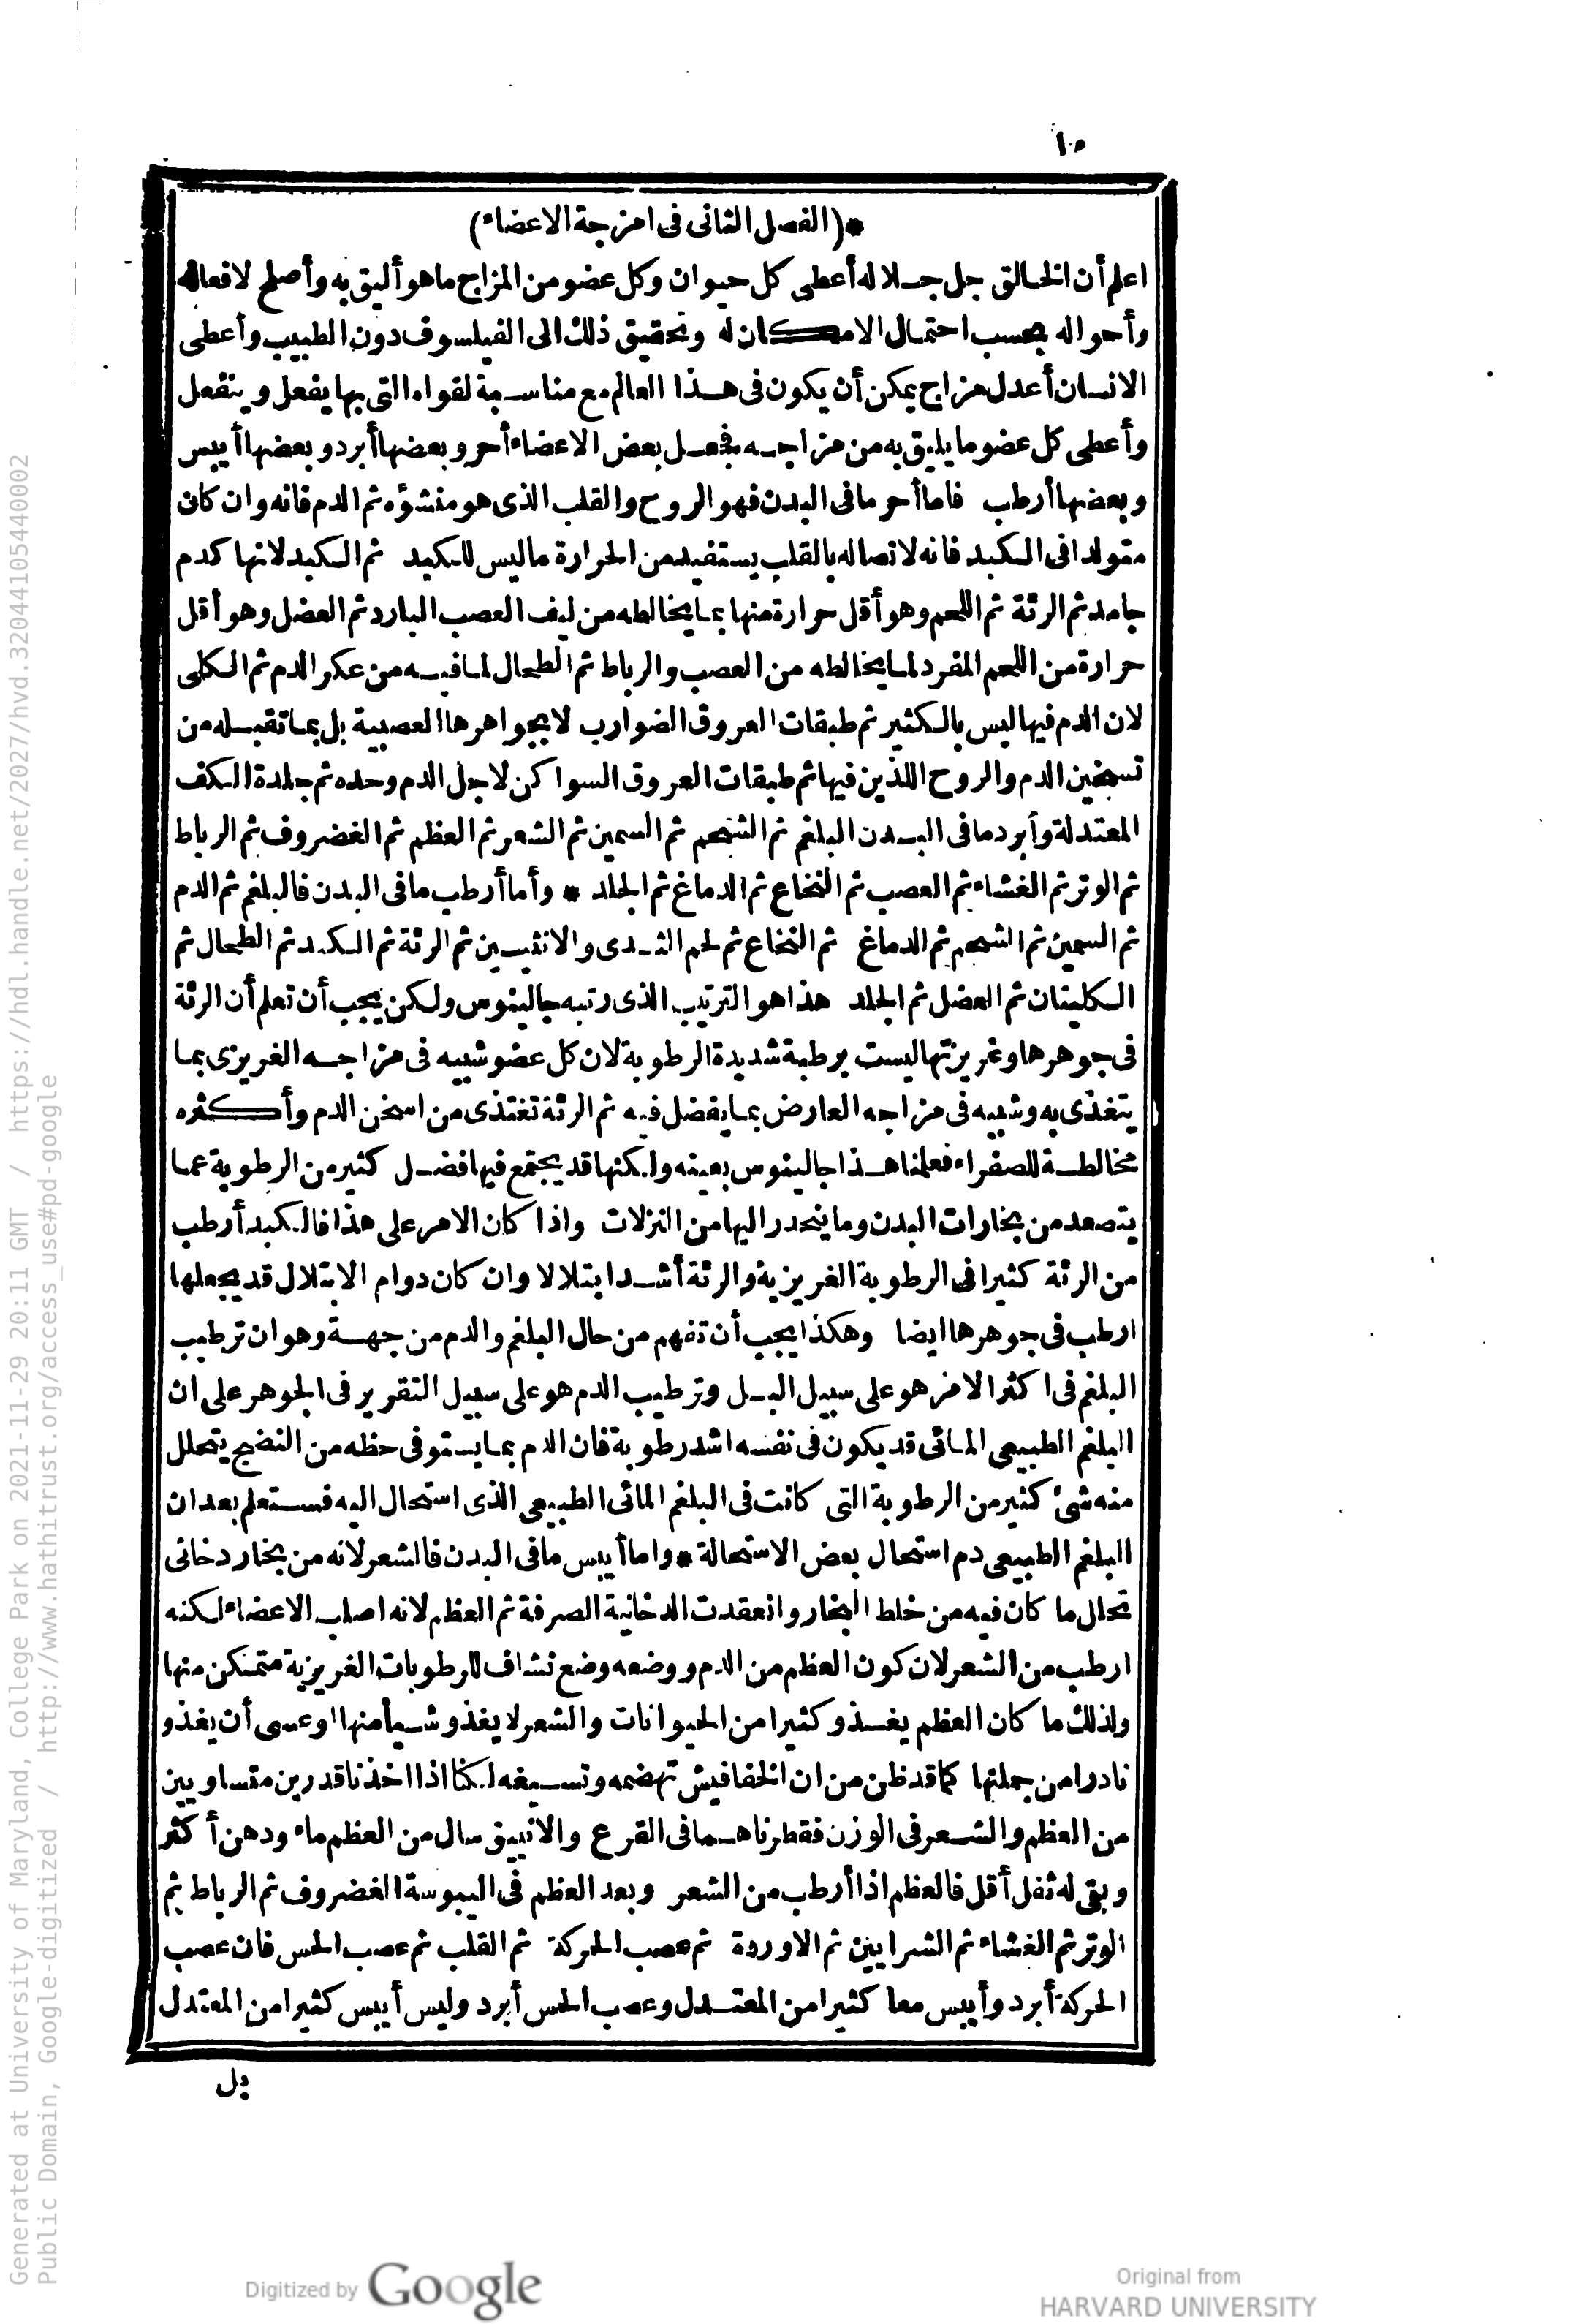 ١٠
*(الفصل الثانى فى امزجة الاعضاء)
اعلم أن الخالق جل جلاله أعطى كل حيوان وكل عضو من المزاج ما هو أليق به وأصلح لافعاله
وأحواله بحسب احتمال الامكان له وتحقيق ذلك الى الفيلسوف دون الطبيب وأعطى
الانسان أعدل مزاج يمكن أن يكون فى هذا العالم مع مناسبة لقواه التى بها يفعل وينفعل
وأعطى كل عضو ما يليق به من مزاجه فجعل بعض الاعضاء أحر وبعضها أبرد وبعضها أيبس
وبعضها أرطب فاما أحر ما فى البدن فهو الروح والقلب الذى هو منشؤه ثم الدم فانه وان كان
متولدا فى الكبد فانه لاتصاله بالقلب يستفيد من الحرارة ما ليس للكبد ثم الكبد لانها كدم
جامد ثم الرئة ثم اللحم وهو أقل حرارة منها بما يخالطه من ليف العصب البارد ثم العضل وهو أقل
حرارة من اللحم المفرد لما يخالطه من العصب والرباط ثم الطحال لما فيه من عكر الدم ثم الكلى
لان الدم فيها ليس بالكثير ثم طبقات العروق الضوارب لا بجواهرها العصبية بل بما تقبله من
تسخين الدم والروح اللذين فيها ثم طبقات العروق السواكن لاجل الدم وحده ثم جلدة الكف
المعتدلة وأبرد ما فى البدن البلغم ثم الشحم ثم السمين ثم الشعر ثم العظم ثم الغضروف ثم الرباط
ثم الوتر ثم الغشاء ثم العصب ثم النخاع ثم الدماغ ثم الجلد * وأما أرطب ما فى البدن فالبلغم ثم الدم
ثم السمين ثم الشحم ثم الدماغ ثم النخاع ثم لحم الثدى والانثيين ثم الرئة ثم الكبد ثم الطحال ثم
الكليتان ثم العضل ثم الجلد هذا هو الترتيب الذى رتبه جالينوس ولكن يجب أن تعلم أن الرئة
فى جوهرها وغريزتها ليست برطبة شديدة الرطوبة لان كل عضو شبيه فى مزاجه الغريزى بما
يتغذى به وشبيه فى مزاجه العارض بما يفضل فيه ثم الرئة تغتذى من اسخن الدم وأكثره
مخالطة للصفراء فعلمنا هذا جالينوس بعينه ولكنها قد يجتمع فيها فضل كثير من الرطوبة عما
يتصعد من بخارات البدن وما ينحدر اليها من النزلات واذا كان الامر على هذا فالكبد أرطب
من الرئة كثيرا فى الرطوبة الغريزية والرئة أشد ابتلالا وان كان دوام الابتلال قد يجعلها
ارطب فى جوهرها ايضا وهكذا يجب أن تفهم من حال البلغم والدم من جهة وهو ان ترطيب
البلغم فى اكثر الامر هو على سبيل البل وترطيب الدم هو على سبيل التقرير فى الجوهر على ان
البلغم الطبيعى المائى قد يكون فى نفسه اشد رطوبة فان الدم بما يستوفى حظه من النضج يتحلل
منه شئ كثير من الرطوبة التى كانت فى البلغم المائى الطبيعى الذى استحال اليه فستعلم بعد ان
البلغم الطبيعى دم استحال بعض الاستحالة * واما أيبس ما فى البدن فالشعر لانه من بخار دخانى
تحلل ما كان فيه من خلط البخار وانعقدت الدخانية الصرفة ثم العظم لانه اصلب الاعضاء لكنه
ارطب من الشعر لان كون العظم من الدم ووضعه وضع نشاف للرطوبات الغريزية متمكن منها
ولذلك ما كان العظم يغذو كثيرا من الحيوانات والشعر لا يغذو شيأ منها او عسى أن يغذو
نادرا من جملتها كما قد ظن من ان الخفافيش تهضمه وتسيغه لكنا اذا اخذنا قدرين متساويين
من العظم والشعر فى الوزن فقطرناهما فى القرع والانبيق سال من العظم ماء ودهن أكثر
وبقى له ثفل أقل فالعظم اذا أرطب من الشعر وبعد العظم فى اليبوسة الغضروف ثم الرباط ثم
الوتر ثم الغشاء ثم الشرايين ثم الاوردة ثم عصب الحركة ثم القلب ثم عصب الحس فان عصب
الحركة أبرد وأيبس معا كثيرا من المعتدل وعصب الحس أبرد وليس أيبس كثيرا من المعتدل
بل
Generated at University of Maryland, College Park on 2021-11-29 20:11 GMT / https://hdl.handle.net/2027/hvd.32044105440002
Public Domain, Google-digitized / http://www.hathitrust.org/access_use#pd-google
Digitized by Google
Original from
HARVARD UNIVERSITY